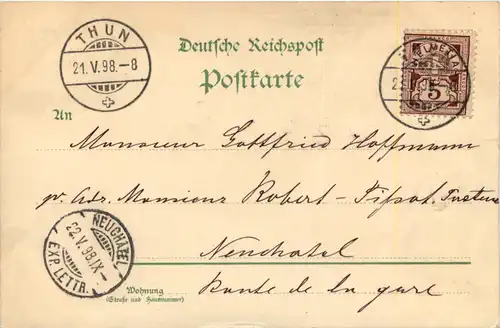 THUN
21.V.98.–8
Deutsche Reichspost
Postkarte
5
An
Monsieur Gottfried Hoffmann
pr. Adr. Monsieur Robert-
Neuchatel
NEUCHATEL
22.V.98.IX–
EXP. LETTR.
Wohnung
(Straße und Hausnummer)
Route de la gare